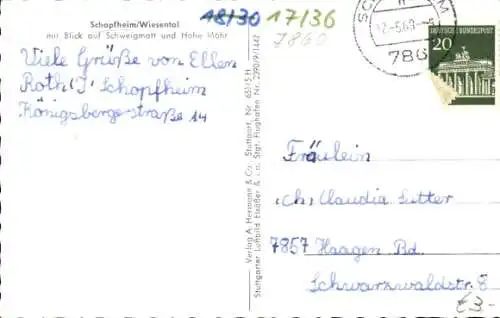 Schopfheim/Wiesental
mit Blick auf Schweigmatt und Hohe Möhr
18/30 17/36
7860
Viele Grüße von Ellen
Roth (J) Schopfheim
Königsbergerstraße 14
Verlag A. Hermann & Co. Stuttgart, Nr. 65/15 H
Stuttgarter Luftbild Elsäßer & Co. Stgt. Flughafen Nr. 2390/9/1442
12.-5.69
786
DEUTSCHE BUNDESPOST
20
Fräulein
(ch) Claudia Sutter
7857 Haagen Bd.
Schwarzwaldstr. 8
£3